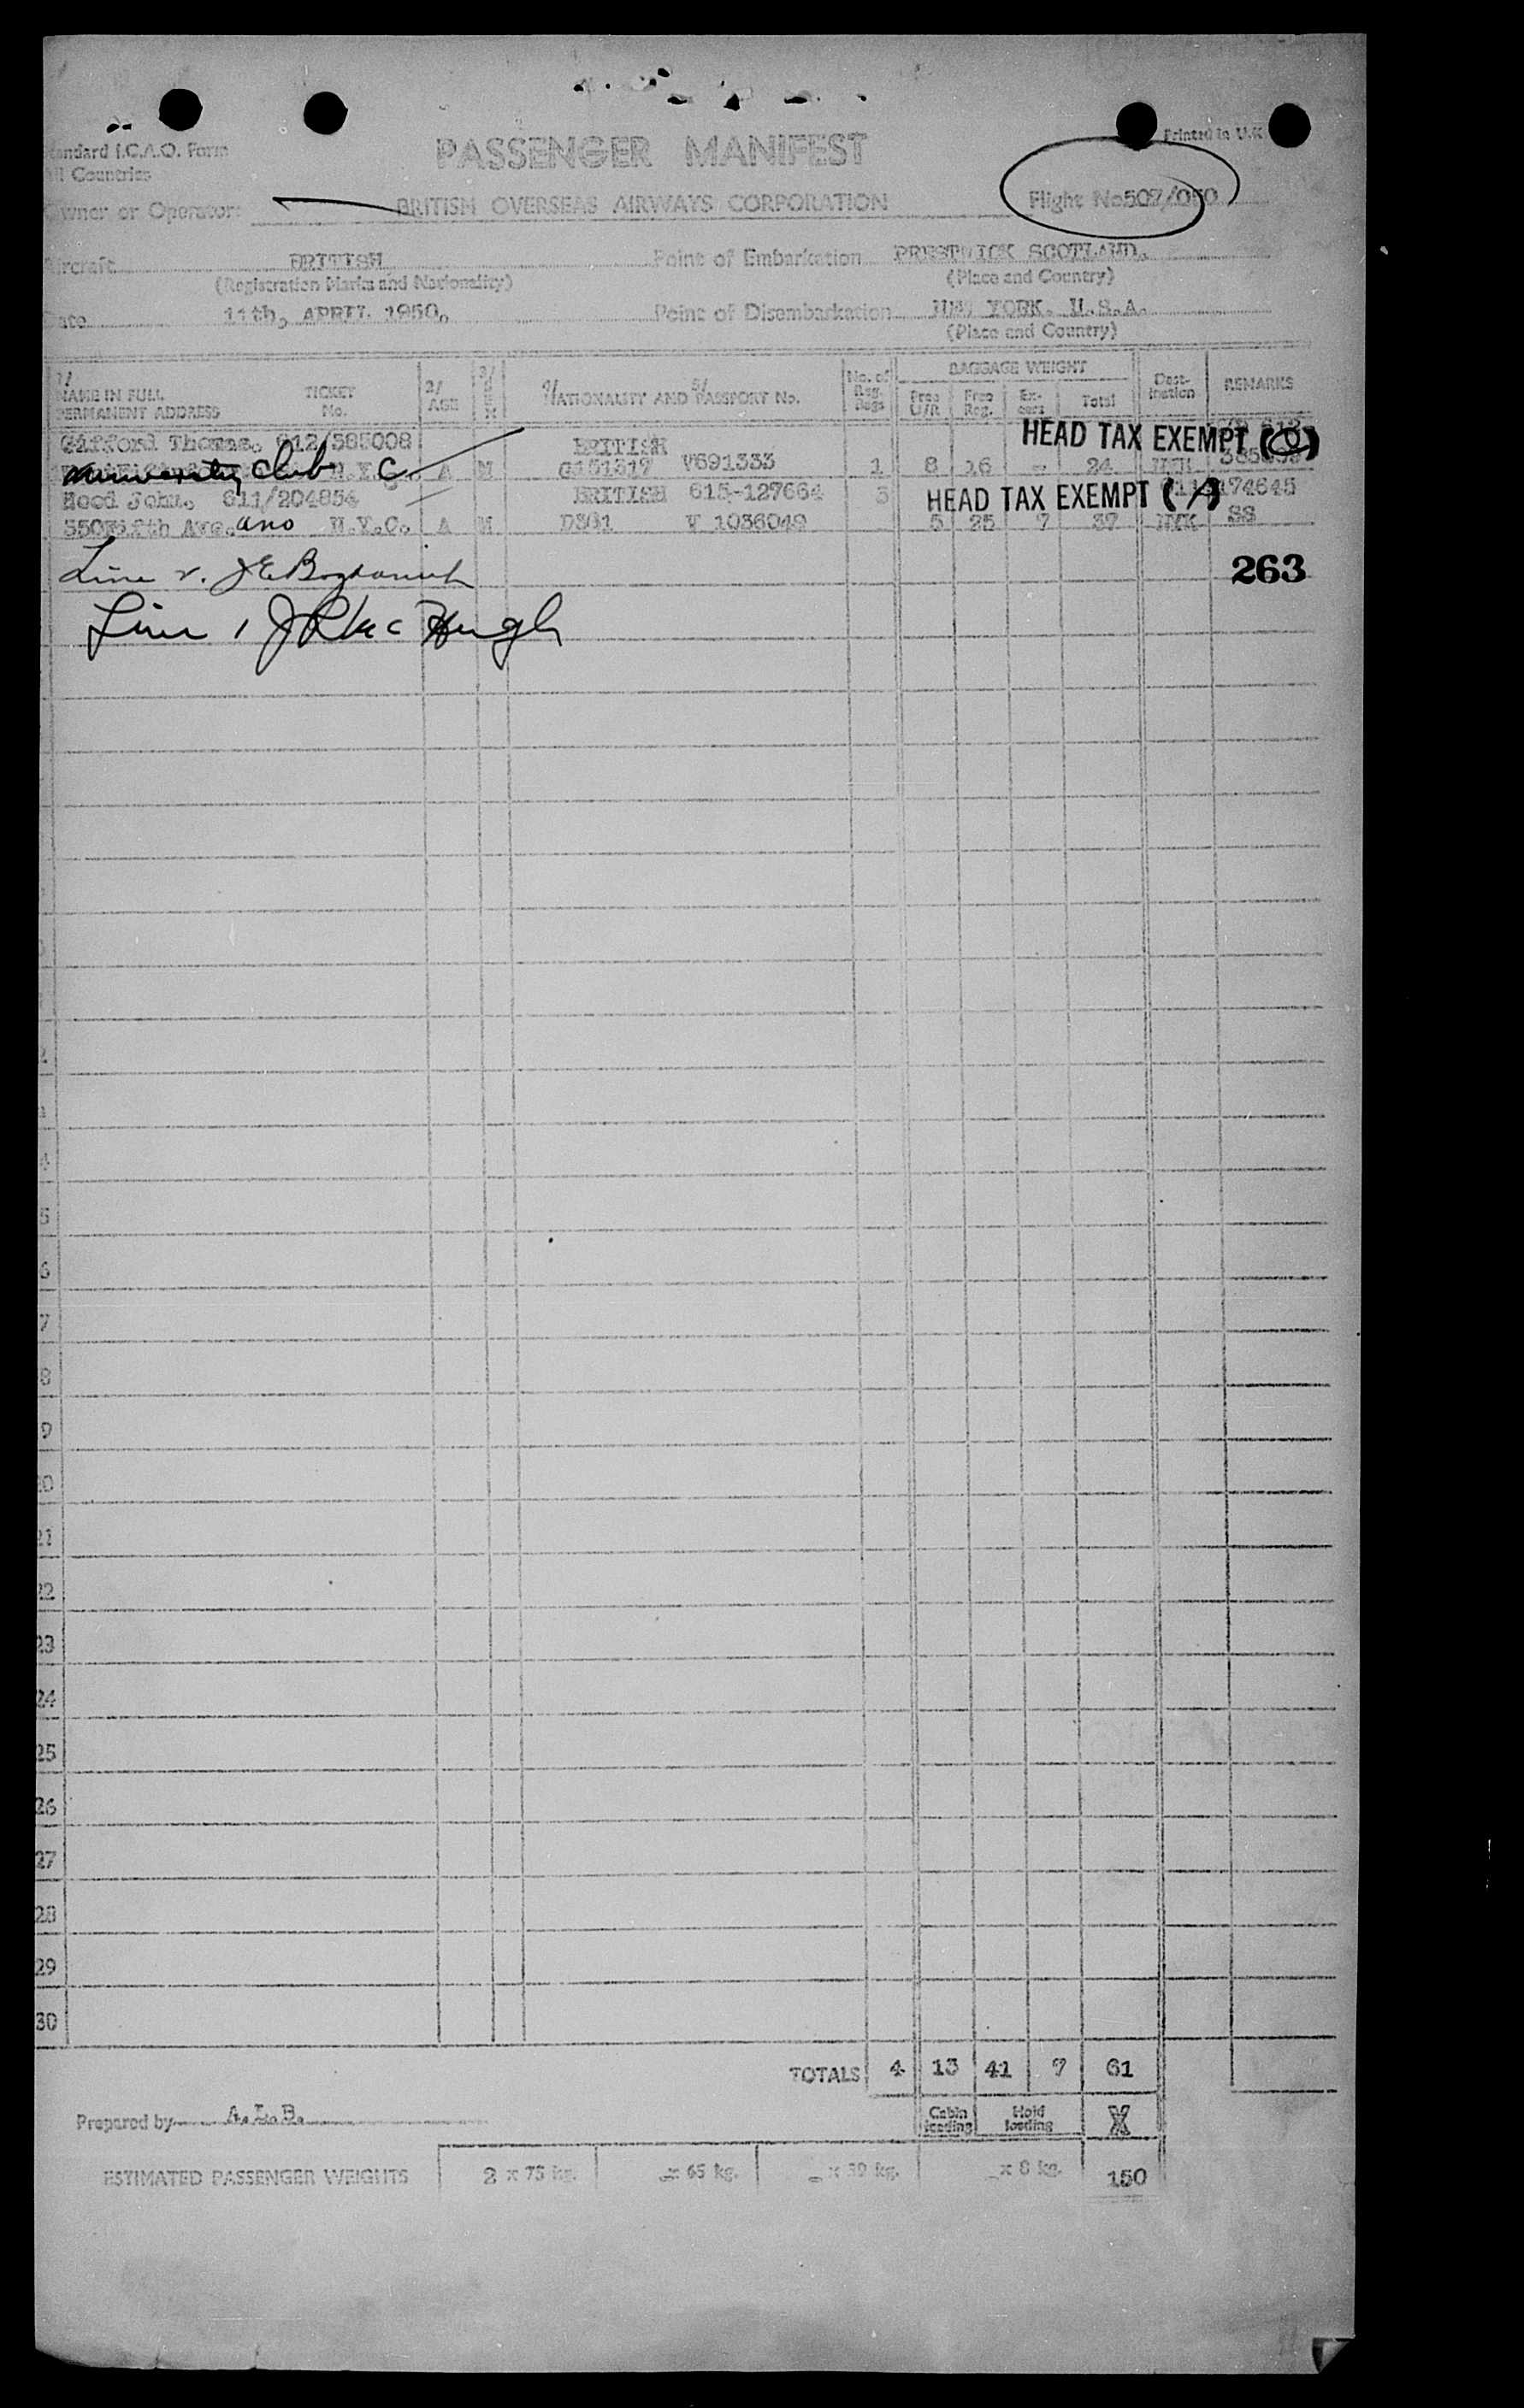 Standard I.C.A.O. Form
All Countries
Printed in U.K.
PASSENGER MANIFEST
Owner or Operator: BRITISH OVERSEAS AIRWAYS CORPORATION Flight No 507/050
Aircraft BRITISH Point of Embarkation PRESTWICK SCOTLAND.
(Registration Marks and Nationality) (Place and Country)
Date 11th, APRIL 1950. Point of Disembarkation NEW YORK. U.S.A.
(Place and Country)
1/ NAME IN FULL PERMANENT ADDRESS TICKET No. 2/ AGE 3/ SEX 4/ NATIONALITY AND 5/ PASSPORT No. No. of Reg. Bags BAGGAGE WEIGHT Free U/R Free Reg. Ex-cess Total Dest-ination REMARKS
Gifford Thomas. 612/585008 BRITISH HEAD TAX EXEMPT
university club N.Y.C. A M G151317 V691333 1 8 16 - 24 NYK
Hood John. 811/204854 BRITISH 615-127664 3 HEAD TAX EXEMPT (A) 174645
350 Fifth Ave. N.Y.C. A M D361 V 1036049 5 25 7 37 NYK SS
Line 2. 263
Line 1 Mc Hugh
5
6
7
8
9
20
21
22
23
24
25
26
27
28
29
30
TOTALS 4 13 41 7 61
Prepared by A.L.B. Cabin loading Hold loading X
ESTIMATED PASSENGER WEIGHTS 2 x 75 kg. - x 65 kg. - x 39 kg. - x 8 kg. 150